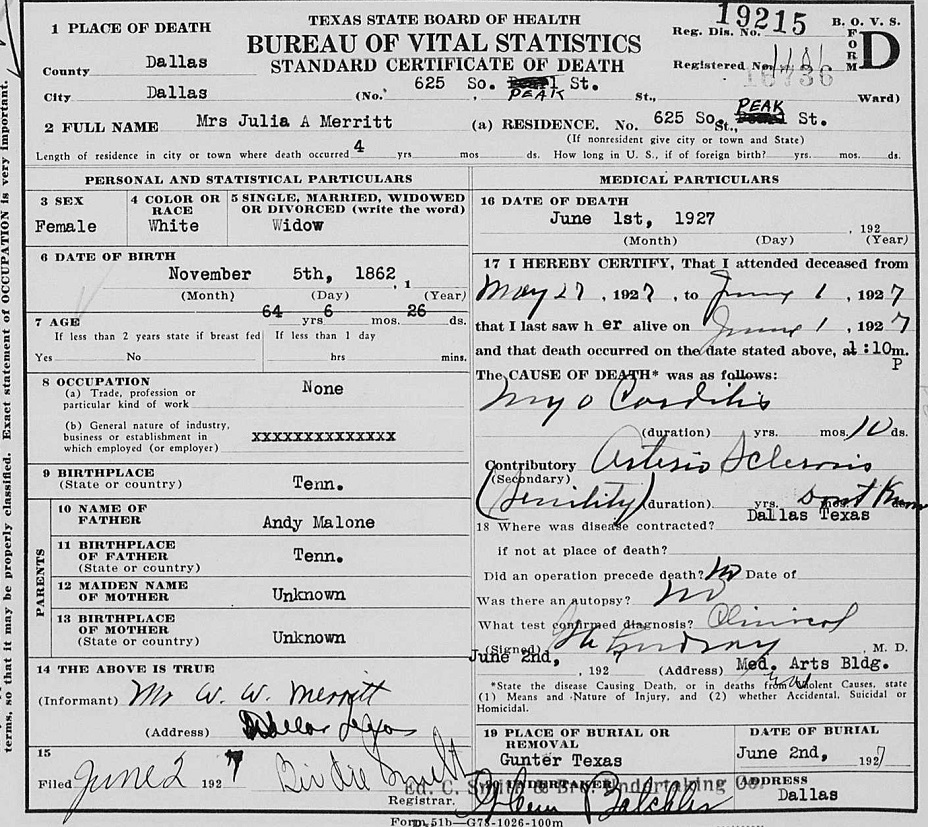 TEXAS STATE BOARD OF HEALTH
BUREAU OF VITAL STATISTICS
STANDARD CERTIFICATE OF DEATH
1 PLACE OF DEATH
County Dallas
City Dallas (No. 625 So. PEAK St. St., Ward)
Reg. Dis. No. 19215
Registered No. 1181
16736
B. O. V. S.
FORM D
2 FULL NAME Mrs Julia A Merritt
(a) RESIDENCE. No. 625 So. PEAK St., St.
(If nonresident give city or town and State)
Length of residence in city or town where death occurred 4 yrs mos ds. How long in U. S., if of foreign birth? yrs. mos. ds.
PERSONAL AND STATISTICAL PARTICULARS
3 SEX
Female
4 COLOR OR RACE
White
5 SINGLE, MARRIED, WIDOWED
OR DIVORCED (write the word)
Widow
6 DATE OF BIRTH
November 5th, 1862, 1
(Month) (Day) (Year)
7 AGE 64 yrs 6 mos. 26 ds.
If less than 2 years state if breast fed
Yes No
If less than 1 day
hrs mins.
8 OCCUPATION
(a) Trade, profession or
particular kind of work None
(b) General nature of industry,
business or establishment in
which employed (or employer) XXXXXXXXXXXXXX
9 BIRTHPLACE
(State or country) Tenn.
PARENTS
10 NAME OF
FATHER Andy Malone
11 BIRTHPLACE
OF FATHER
(State or country) Tenn.
12 MAIDEN NAME
OF MOTHER Unknown
13 BIRTHPLACE
OF MOTHER
(State or country) Unknown
14 THE ABOVE IS TRUE
(Informant) Mr W. W. Merritt
(Address) Dallas Texas
15
Filed June 2 1927 Birdie Smith
Registrar.
MEDICAL PARTICULARS
16 DATE OF DEATH
June 1st, 1927 , 192
(Month) (Day) (Year)
17 I HEREBY CERTIFY, That I attended deceased from
May 27, 1927, to June 1, 1927
that I last saw h er alive on June 1, 1927
and that death occurred on the date stated above, at 1:10 m.
P
The CAUSE OF DEATH* was as follows:
Myo Carditis
(duration) yrs. mos. 10 ds.
Contributory Arterio Sclerosis
(Secondary)
(Senility) (duration) yrs. mos. Dont Know
18 Where was disease contracted? Dallas Texas
if not at place of death?
Did an operation precede death? No Date of
Was there an autopsy? No
What test confirmed diagnosis? Clinical
(Signed) Lindsay, M. D.
June 2nd, , 192 (Address) Med. Arts Bldg.
*State the disease Causing Death, or in deaths from Violent Causes, state
(1) Means and Nature of Injury, and (2) whether Accidental, Suicidal or
Homicidal.
19 PLACE OF BURIAL OR
REMOVAL
Gunter Texas
DATE OF BURIAL
June 2nd, 1927
20 UNDERTAKER
Ed. C. Smith & Bro. Undertaking Co.
ADDRESS
Dallas
Form 51b—G78-1026-100m
terms, so that it may be properly classified. Exact statement of OCCUPATION is very important.